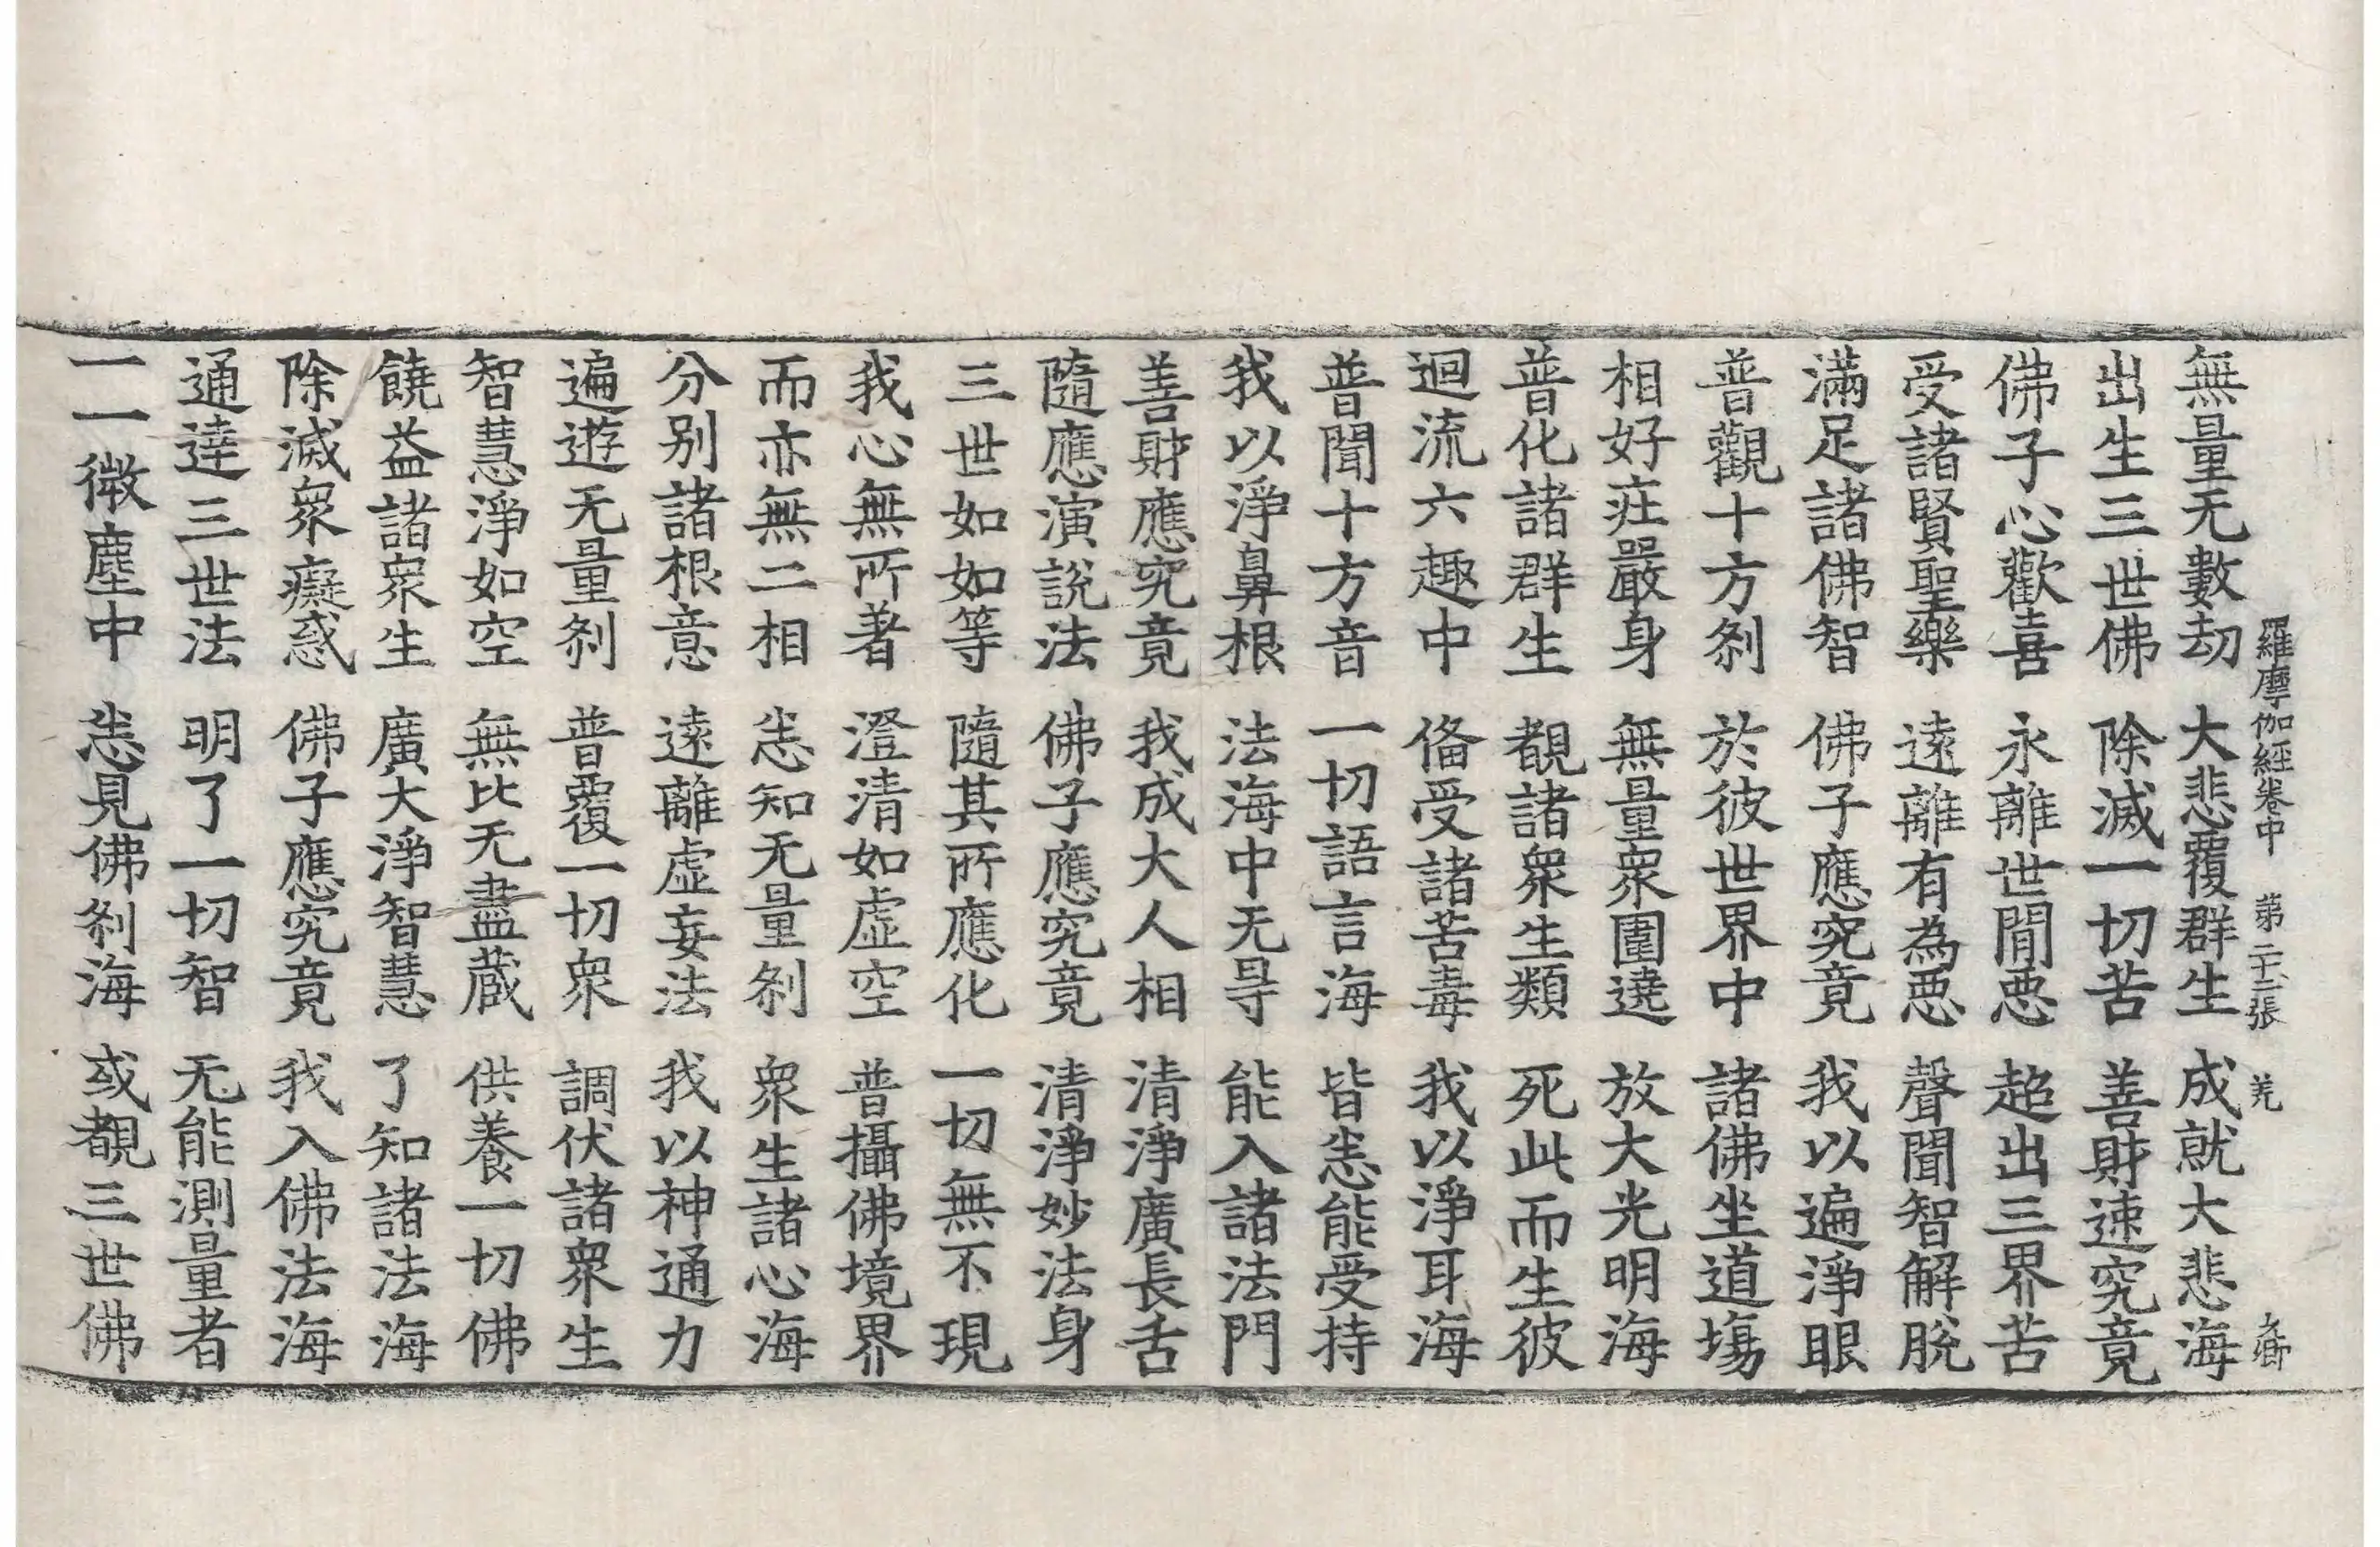 羅摩伽經卷中 第二十二張 羌
無量无數劫 大悲覆群生 成就大悲海
出生三世佛 除滅一切苦 善財速究竟
佛子心歡喜 永離世間惡 超出三界苦
受諸賢聖樂 遠離有為惡 聲聞智解脫
滿足諸佛智 佛子應究竟 我以遍淨眼
普觀十方刹 於彼世界中 諸佛坐道場
相好莊嚴身 無量衆圍遶 放大光明海
普化諸群生 覩諸衆生類 死此而生彼
迴流六趣中 俻受諸苦毒 我以淨耳海
普聞十方音 一切語言海 皆悉能受持
我以淨鼻根 法海中无㝵 能入諸法門
善財應究竟 我成大人相 清淨廣長舌
隨應演說法 佛子應究竟 清淨妙法身
三世如如等 隨其所應化 一切無不現
我心無所著 澄清如虛空 普攝佛境界
而亦無二相 悉知无量刹 衆生諸心海
分別諸根意 遠離虛妄法 我以神通力
遍遊无量刹 普覆一切衆 調伏諸衆生
智慧淨如空 無比无盡藏 供養一切佛
饒益諸衆生 廣大淨智慧 了知諸法海
除滅衆癡惑 佛子應究竟 我入佛法海
通達三世法 明了一切智 无能測量者
一一微塵中 悉見佛刹海 或覩三世佛